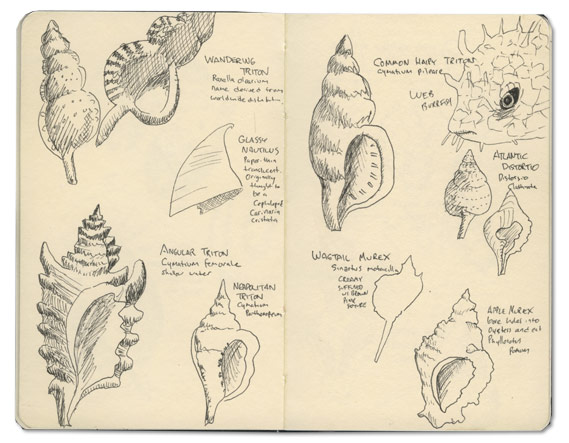 WANDERING
TRITON
Ranella olearium
name derived from
worldwide distribution
GLASSY
NAUTILUS
Paper-thin
translucent.
Originally
thought to
be a
Cephalopod
Carinaria
cristata
ANGULAR TRITON
Cymatium femorale
shallow water
NEAPOLITAN
TRITON
Cymatium
Parthenopeum
COMMON HAIRY TRITON
Cymatium Pileare
WEB
BURRFISH
ATLANTIC
DISTORTIO
Distorsio
Clathrata
WAGTAIL MUREX
CREAMY
SUFFUSED
W/ BROWN
FINE
APPLE MUREX
bore holes into
Oysters and eat
Phyllonotus
Pomum